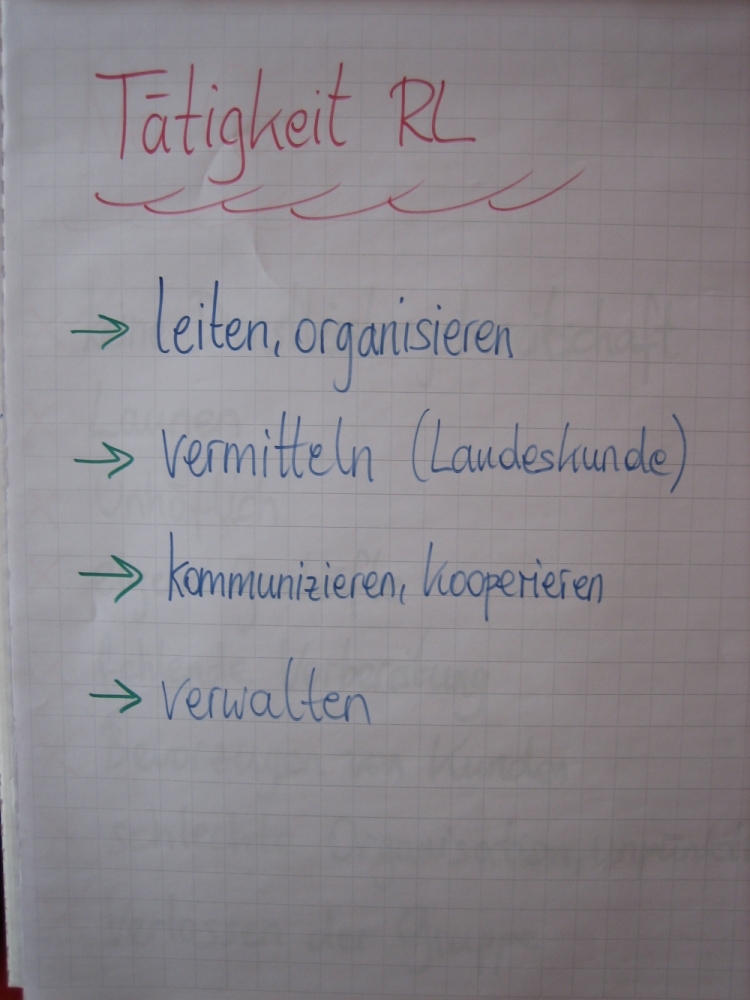 Tätigkeit RL
→ leiten, organisieren
→ vermitteln (Landeskunde)
→ kommunizieren, kooperieren
→ verwalten